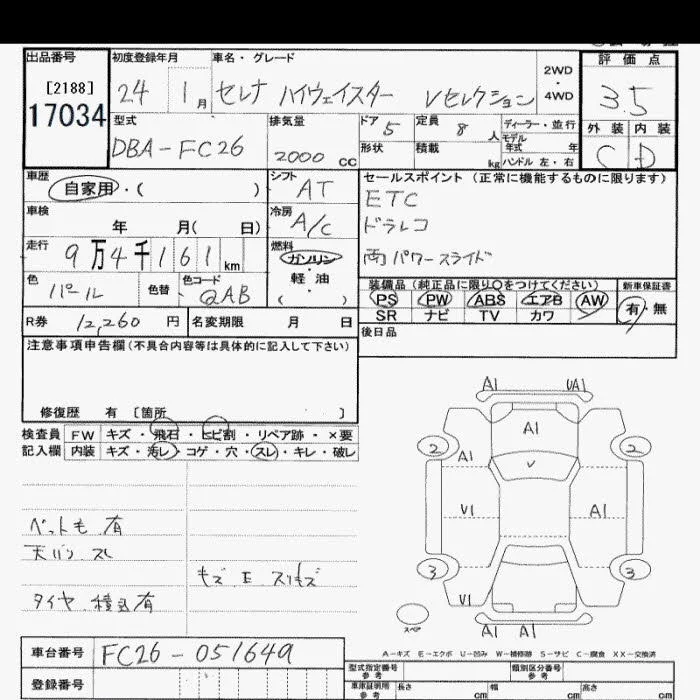 出品番号
[2188]
17034
初度登録年月
24 1 月
車名・グレード
セレナ ハイウェイスター Vセレクション
2WD
4WD
評価点
3.5
型式
DBA-FC26
排気量
2000 cc
ドア 5
定員 8 人
ディーラー・並行
モデル
年式 年
形状
積載 kg
ハンドル 左・右
外装 内装
C D
車歴
自家用・( )
シフト
AT
セールスポイント (正常に機能するものに限ります)
ETC
ドラレコ
両パワースライド
車検
年 月( 日)
冷房
A/C
走行
9万4千161km
燃料
ガソリン
軽・油
( )
色
パール
色替
色コード
QAB
装備品 (純正品に限り○をつけてください)
PS PW ABS エアB AW
SR ナビ TV カワ
新車保証書
有・無
R券 12,260 円
名変期限 月 日
後日品
注意事項申告欄(不具合内容等は具体的に記入して下さい)
修復歴 有 [箇所 ]
検査員
記入欄
FW キズ・飛石・ヒビ割・リペア跡・×要
内装 キズ・汚レ・コゲ・穴・スレ・キレ・破レ
ペット毛 有
天バリ スレ
キズ E スリキズ
タイヤ 積込有
A1 UA1
A1
2 2
A1
V
V1 A1
3 3
V1
スペア
A1 A1
A-キズ E-エクボ U-凹み W-補修跡 S-サビ C-腐食 XX-交換済
車台番号
FC26-051649
登録番号
型式指定番号
参考
類別区分番号
参考
車庫証明用
参考
長さ cm
幅 cm
高さ cm